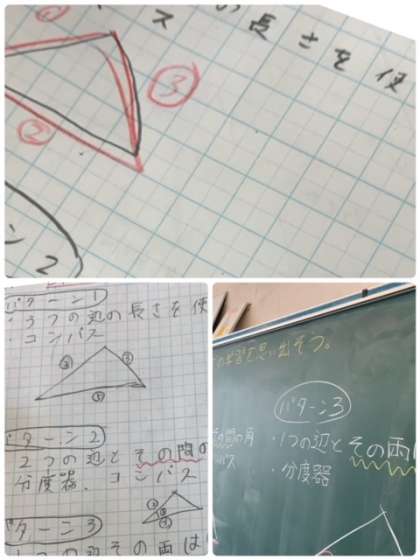 ス の長さを使
②
③
ン2
パターン1
・3つの辺の長さを使
・コンパス
③ ②
①
パターン2
2つの辺とその間の
分度器、コンパス
パターン3
1つの辺とその両は
を思い出そう。
パターン3
の間の角
パス
・1つの辺とその両
・分度器